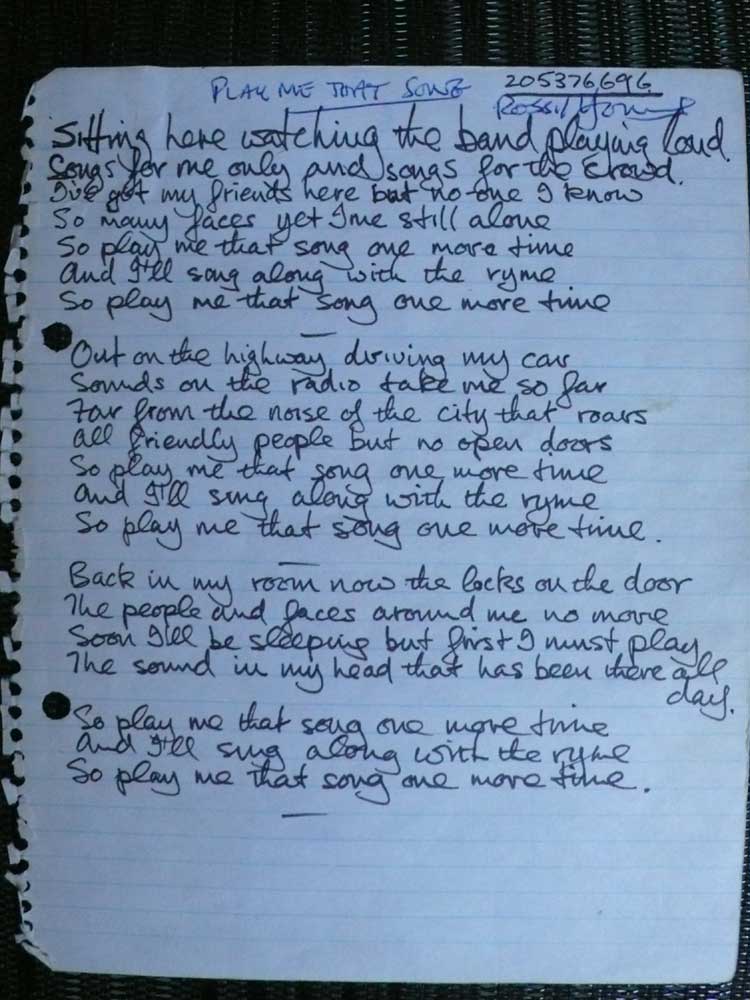 PLAY ME THAT SONG
205376696
Sitting here watching the band playing loud.
Songs for me only and songs for the crowd.
I've got my friends here but no-one I know
So many faces yet I'me still alone
So play me that song one more time
and I'll song along with the ryme
So play me that song one more time
Out on the highway driving my car
Sounds on the radio take me so far
Far from the noise of the city that roars
all friendly people but no open doors
So play me that song one more time
and I'll sing along with the ryme
So play me that song one more time.
Back in my room now the locks on the door
The people and faces around me no more
Soon I'll be sleeping but first I must play
The sound in my head that has been there all
day.
So play me that song one more time
and I'll sing along with the ryme
So play me that song one more time.